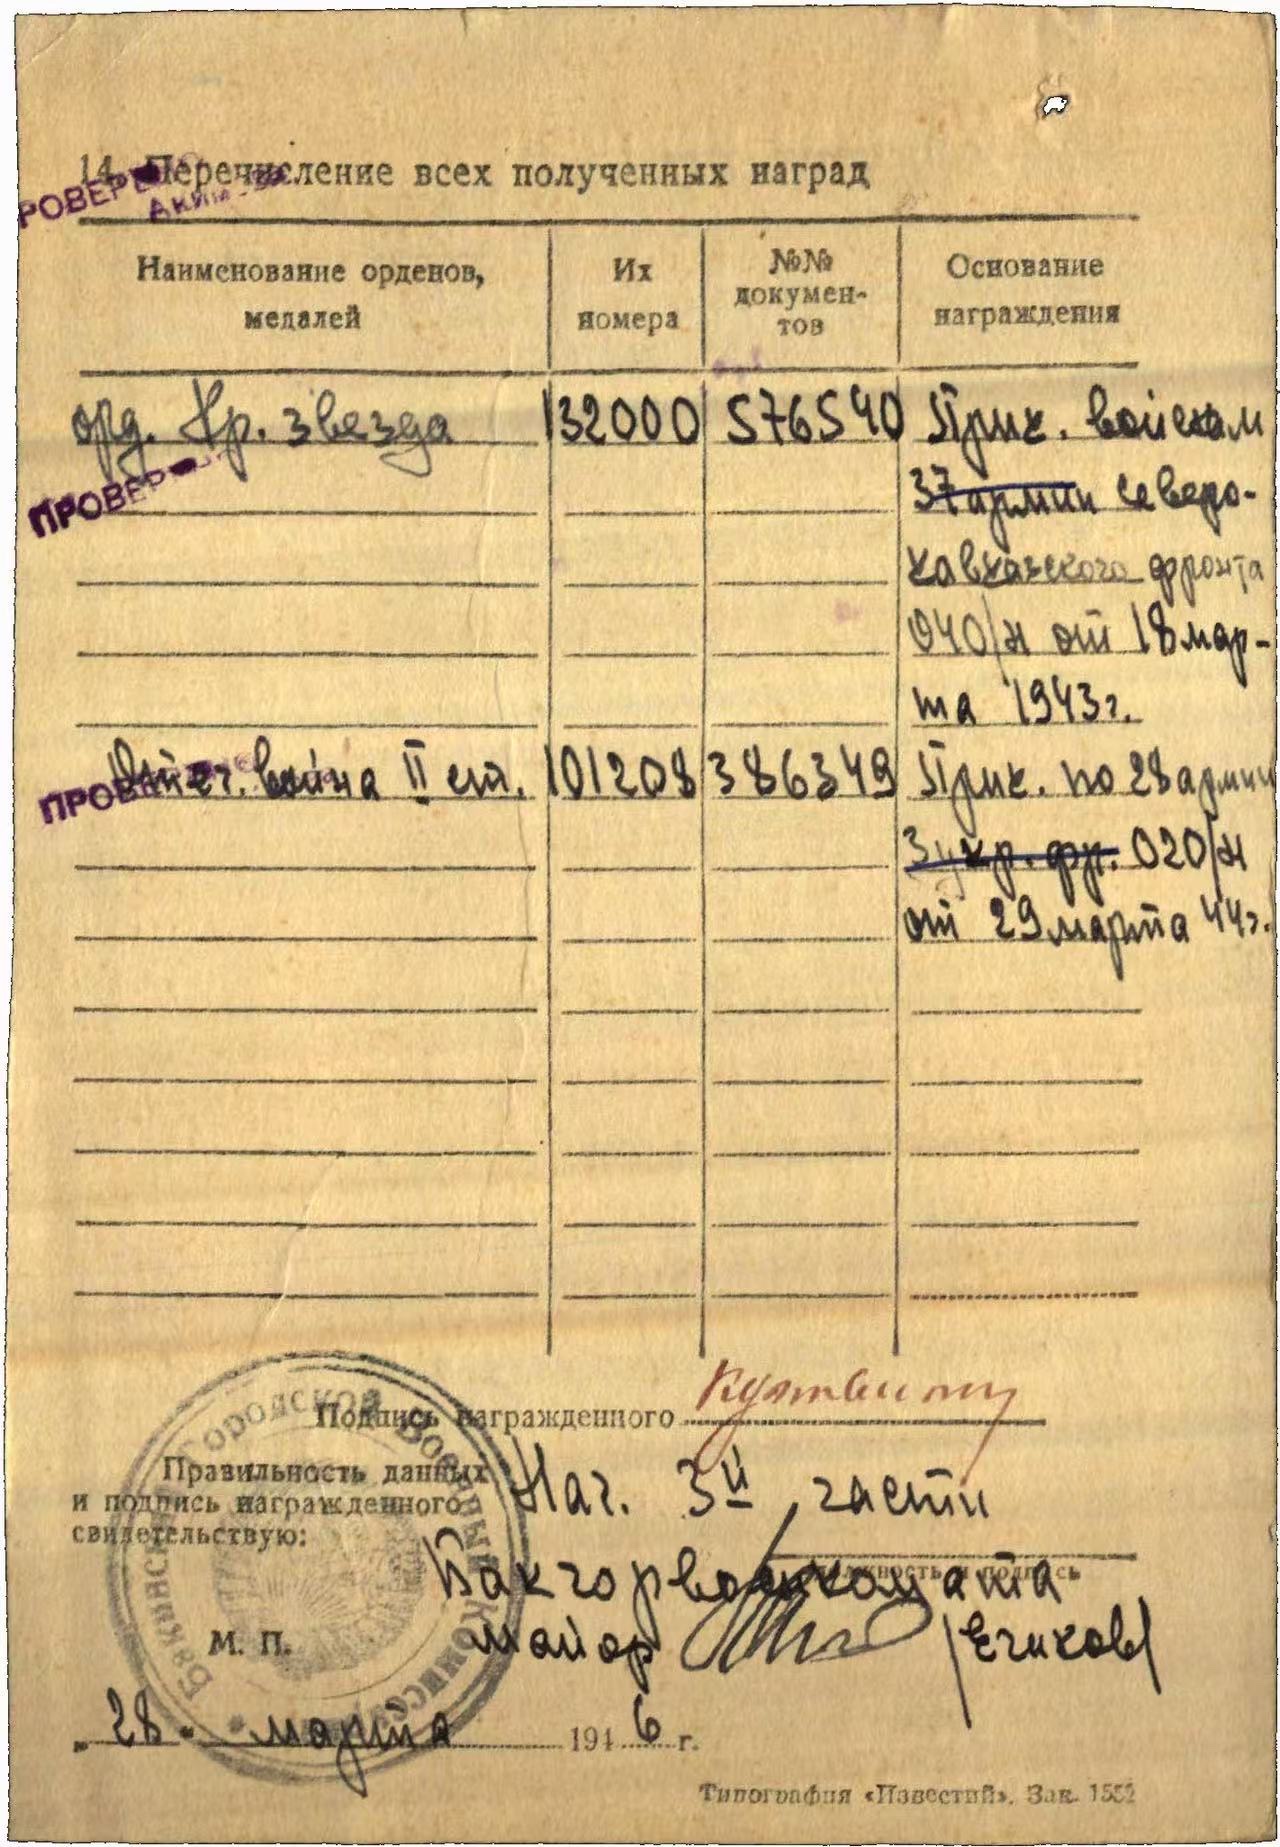 14. Перечисление всех полученных наград
РОВЕРЕ
Наименование орденов, медалей
Их номера
№№ документов
Основание награждения
орд. Кр. звезда 132000 576540 Прик. войскам
ПРОВЕР
37 армии Северо-
кавказского фронта
040/н от 18 мар-
та 1943 г.
ПРОВ
Отеч. война II ст. 101208 386349 Прик. по 28 армии
3 укр. фр. 020/н
от 29 марта 44 г.
Подпись награжденного
Правильность данных
и подпись награжденного
свидетельствую:
Нач. 3й части
должность и подпись
Бакгорвоенкомата
М. П.
майор /Егиков/
Бакинский Городской Военный Комисса
„28" марта 1946 г.
Типография «Известий». Зак. 1552